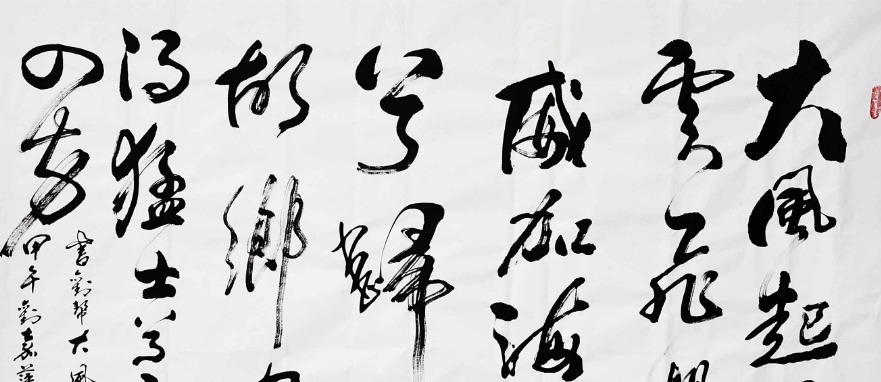 大風起
雲飛
威加海
兮歸
故鄉
得猛士兮
四方
書劉邦大風
甲午劉嘉